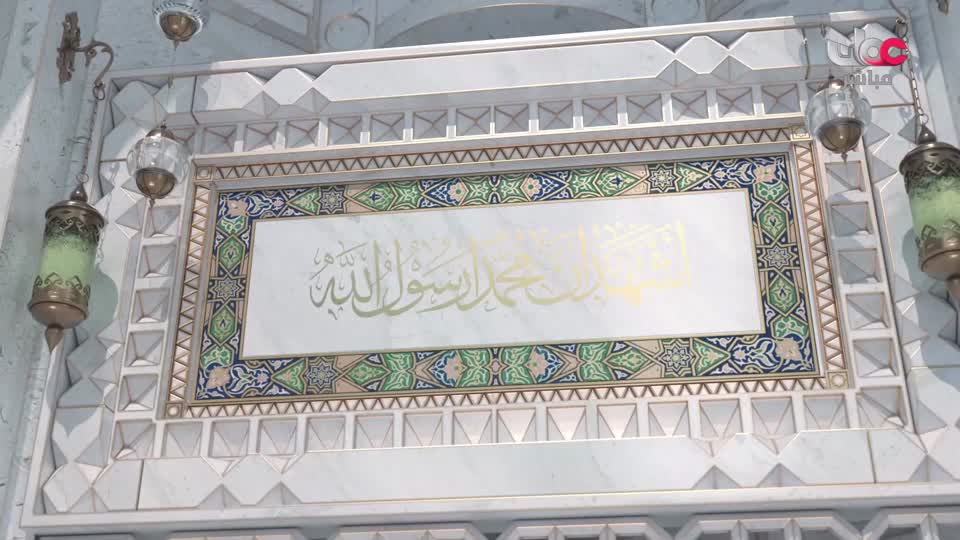 عمان
مباشر
أشهد أن محمدا رسول الله